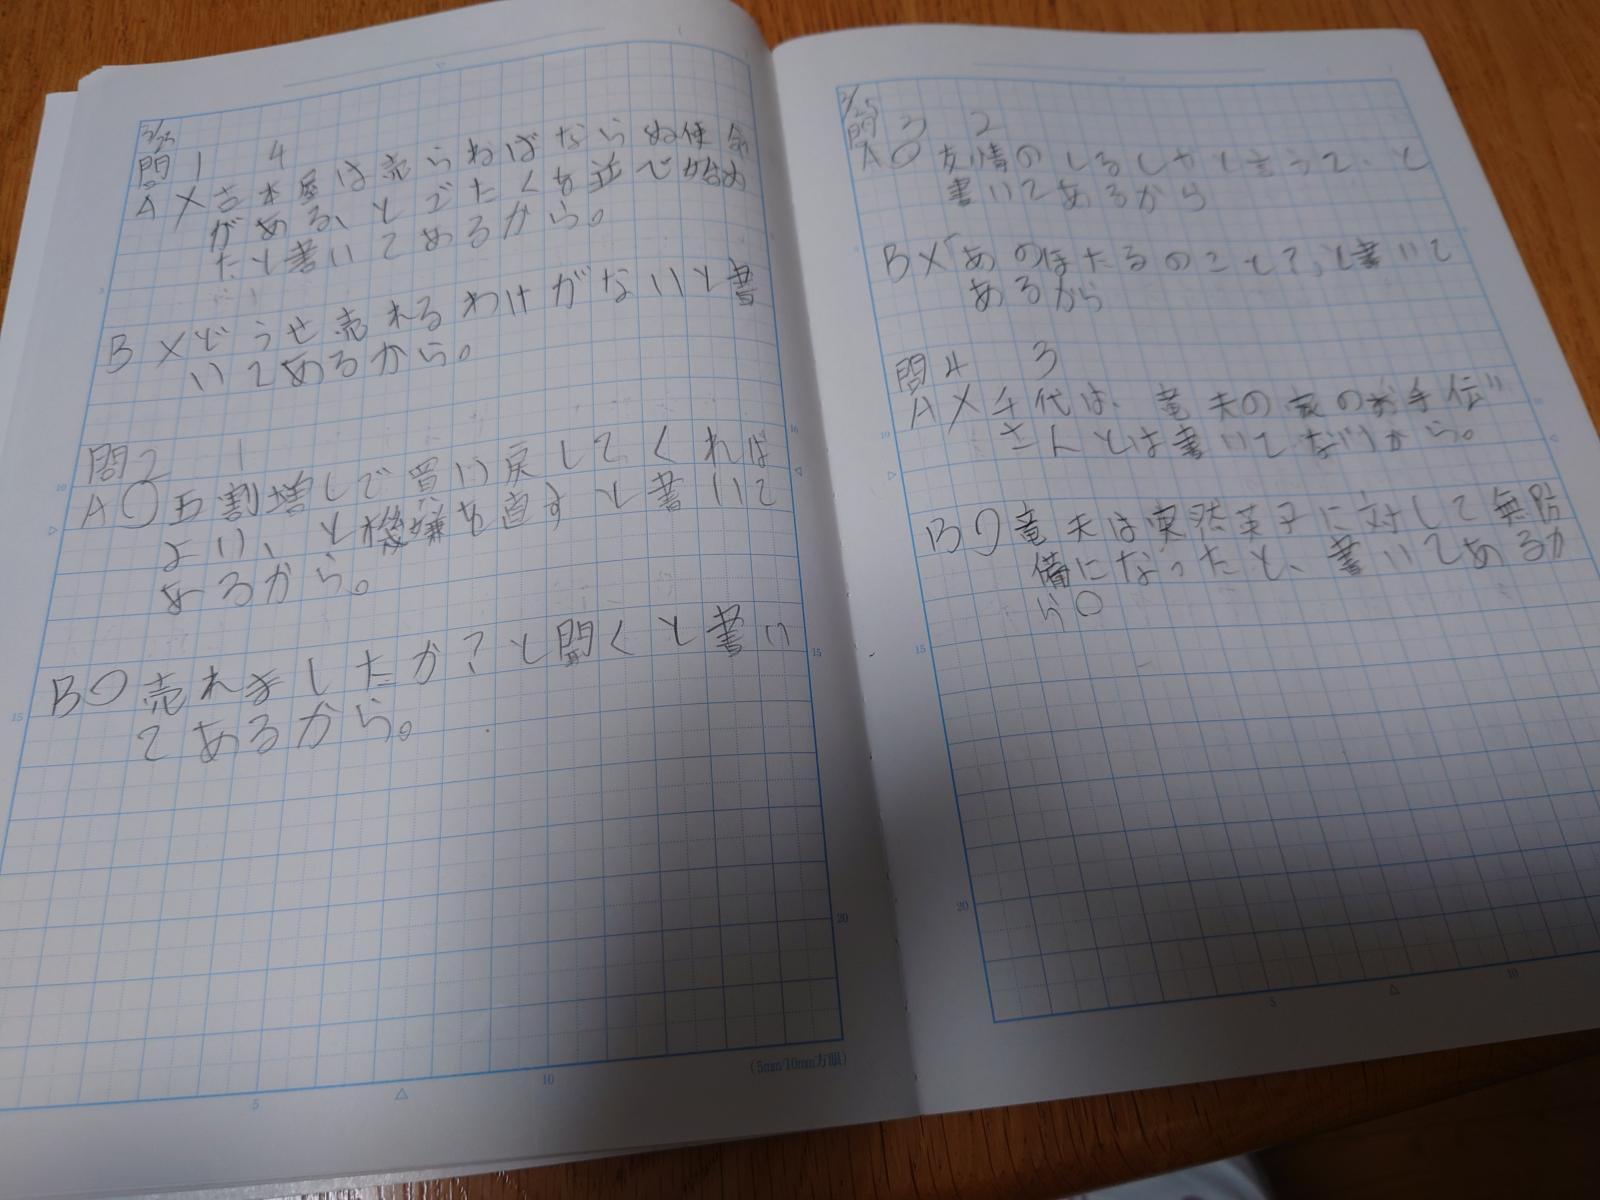 2/23
問1 4
A × 古本屋は売らねばならぬ使命
がある、とごたくを並べ始め
たと書いてあるから。
B × どうせ売れるわけがないと書
いてあるから。
問2 1
A ○ 五割増しで買い戻してくれば
よい、と機嫌を直すと書いて
あるから。
B ○ 売れましたか?と聞くと書い
てあるから。
(5mm/10mm方眼)
2/25
問3 2
A ○ 友情のしるしやと言うて、と
書いてあるから
B ×「あのほたるのこと?」と書いて
あるから
問4 3
A × 千代は、竜夫の家のお手伝い
さんとは書いてないから。
B ○ 竜夫は突然英子に対して無防
備になったと、書いてあるか
ら。